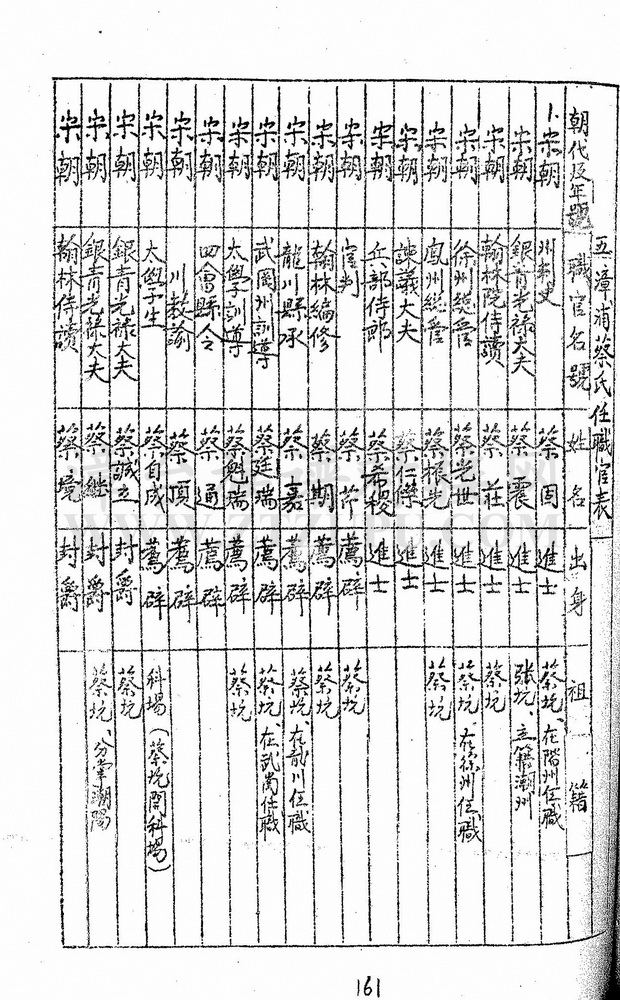 五、漳浦蔡氏任職官表
朝代及年號 職官名號 姓名 出身 祖籍
1、宋朝 州刺史 蔡固 進士 蔡坑、在階州任職
宋朝 銀青光祿大夫 蔡震 進士 張坑、立籍潮州
宋朝 翰林院侍讀 蔡莊 進士 蔡坑
宋朝 徐州總管 蔡光世 進士 蔡坑、在徐州任職
宋朝 鳳州總管 蔡根光 進士 蔡坑
宋朝 諫議大夫 蔡仁傑 進士
宋朝 兵部侍郎 蔡希稷 進士
宋朝 宣判 蔡芹 薦辟 蔡坑
宋朝 翰林編修 蔡期 薦辟 蔡坑
宋朝 龍川縣承 蔡嘉 薦辟 蔡坑、在龍川任職
宋朝 武岡州訓導 蔡廷瑞 薦辟 蔡坑、在武岗任職
宋朝 太學訓導 蔡魁瑞 薦辟 蔡坑
宋朝 四會縣令 蔡通 薦辟
宋朝 川教諭 蔡頂 薦辟
宋朝 太學生 蔡自成 薦辟 科場(蔡坑開科場)
宋朝 銀青光祿大夫 蔡誠之 封爵 蔡坑
宋朝 銀青光祿大夫 蔡継 封爵 蔡坑、分掌潮陽
宋朝 翰林侍讀 蔡境 封爵
161